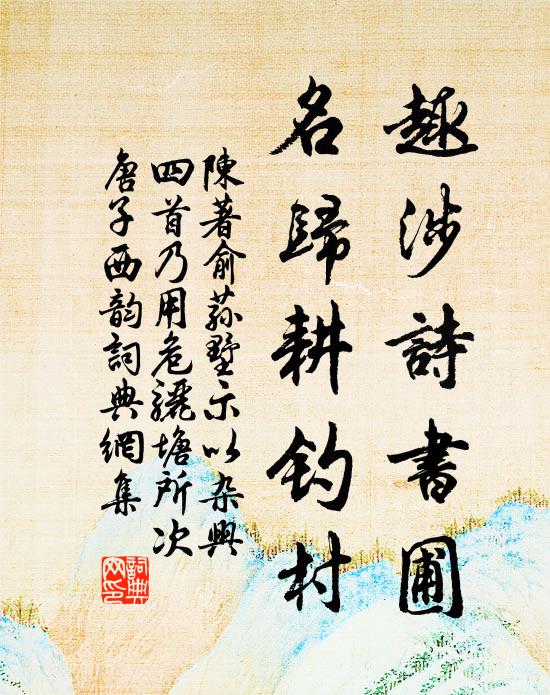 趣涉詩書圃
名歸耕釣村
陳著俞蒜墅示以杂興
四首乃用危驪塘所次
唐子西韵詞典網集
詞典网印